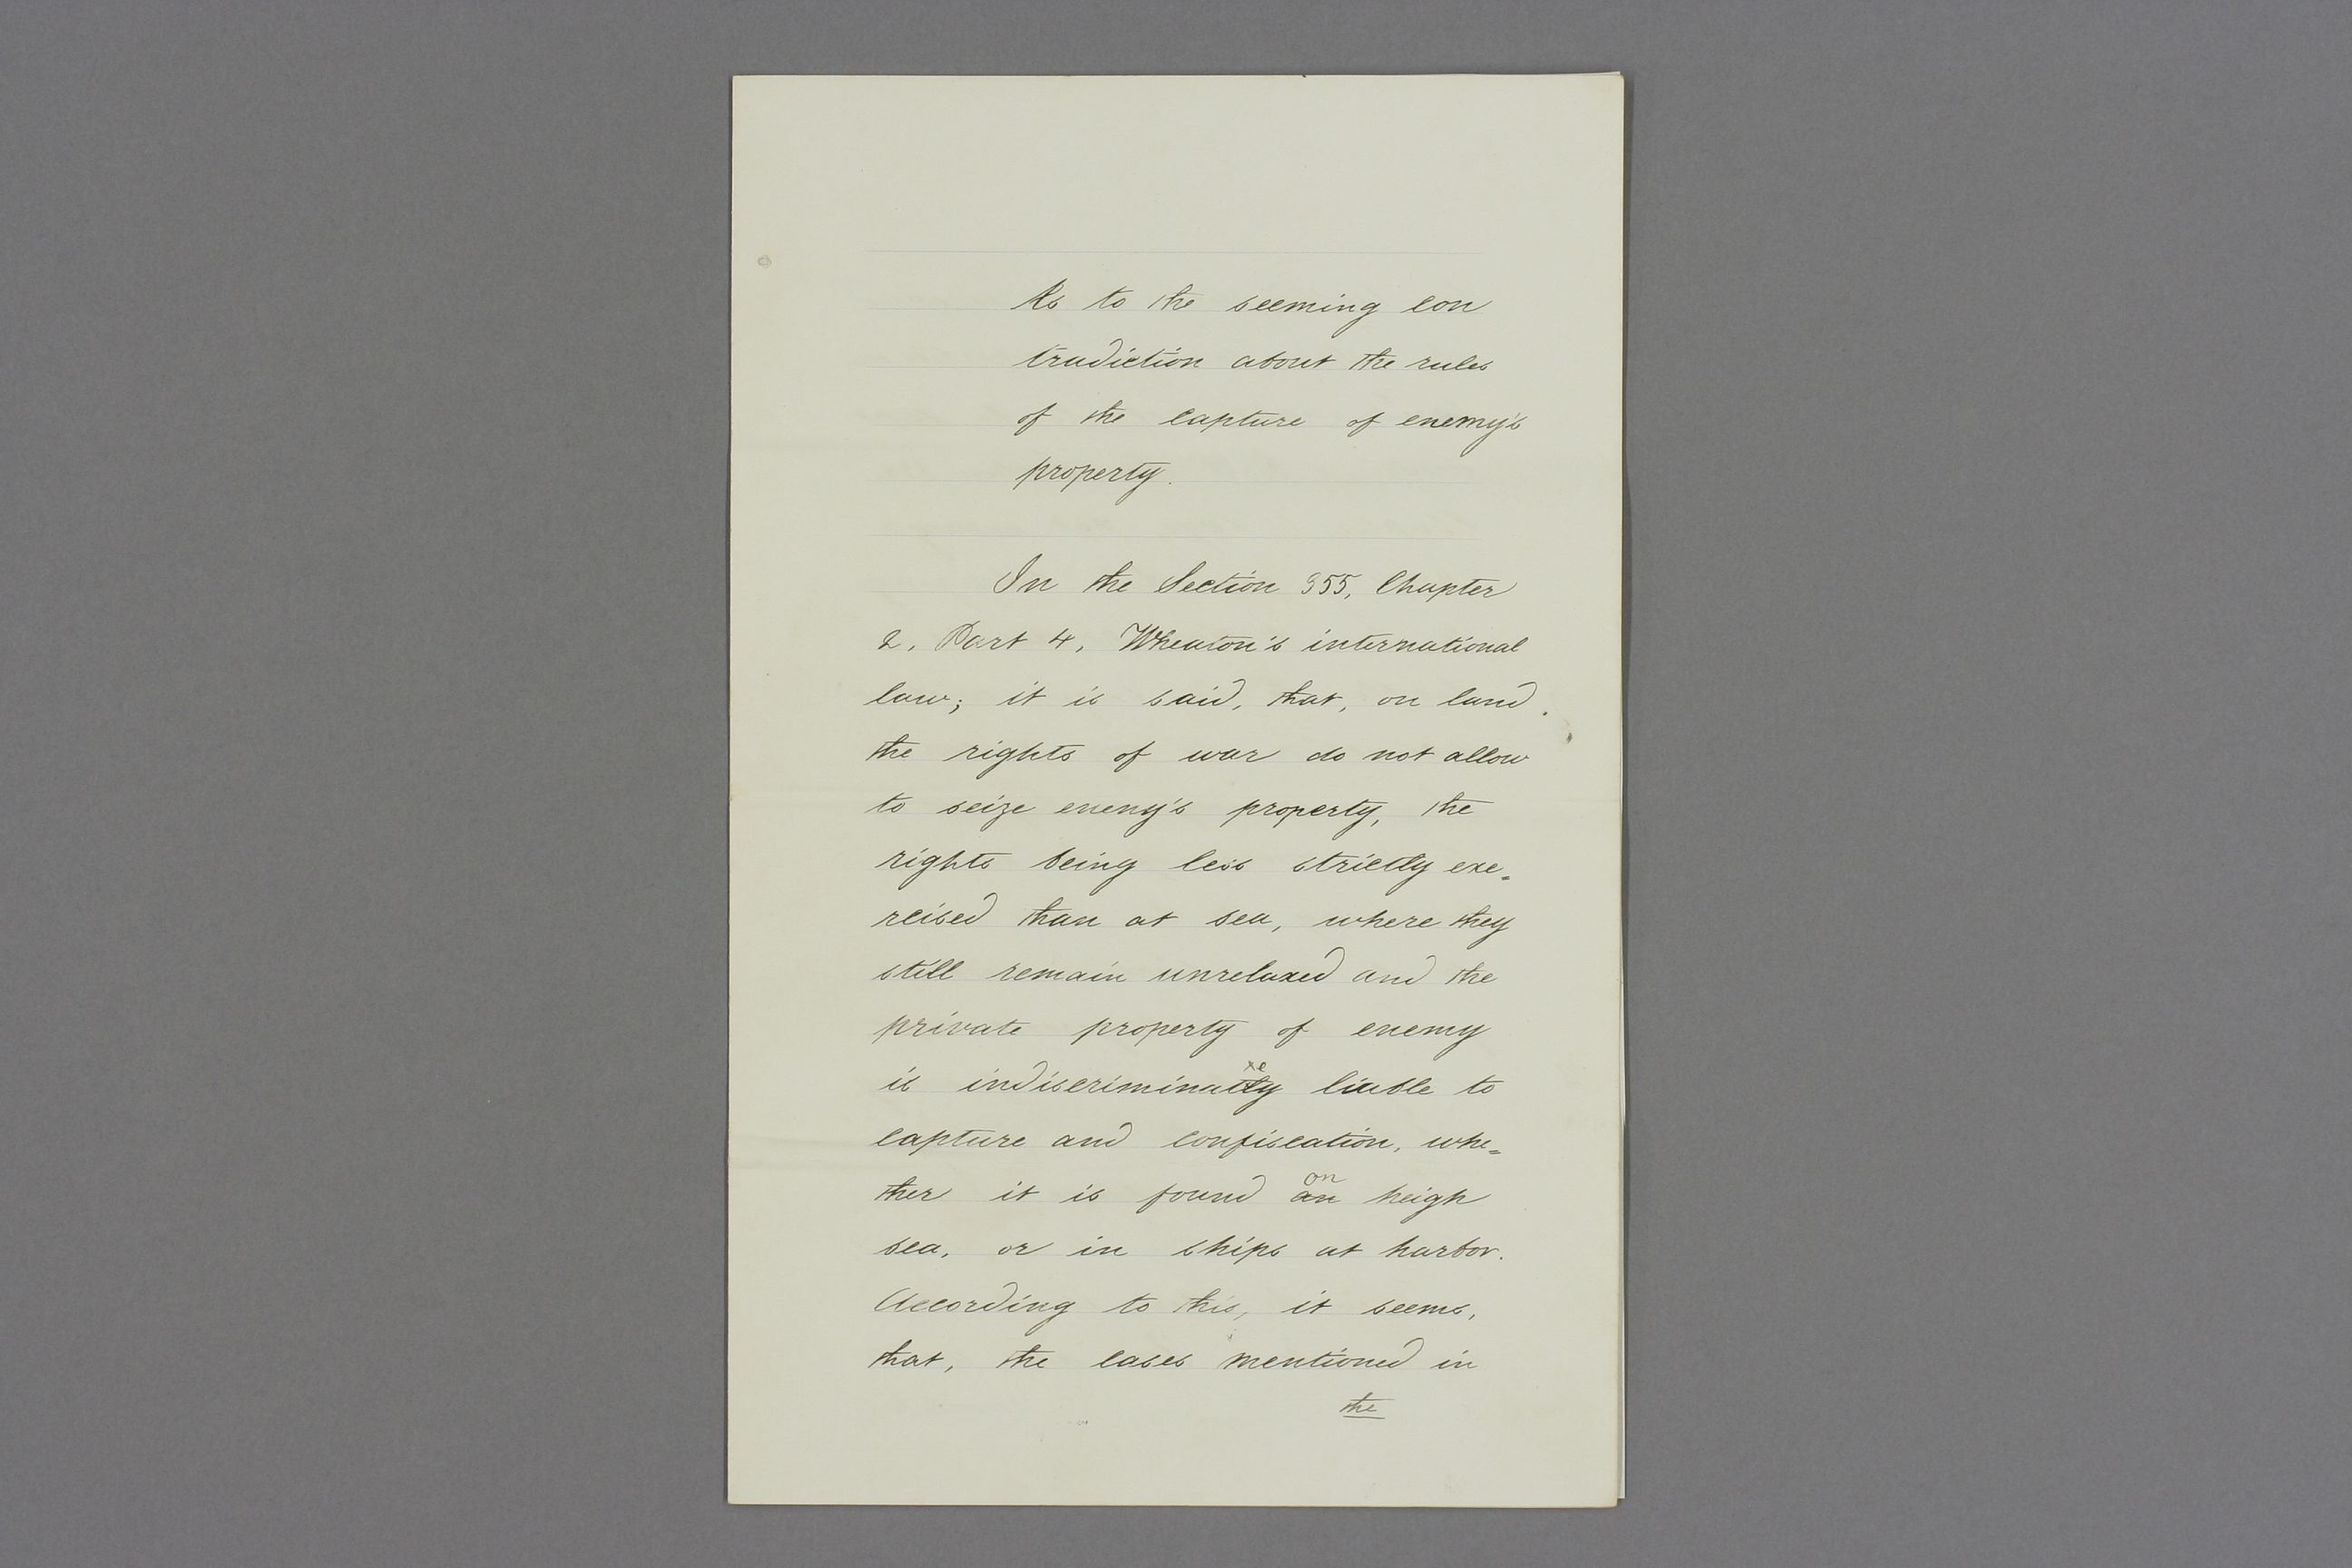 As to the seeming con
tradiction about the rules
of the capture of enemy's
property.
In the Section 355, Chapter
2, Part 4, Wheaton's international
law; it is said, that, on land,
the rights of war do not allow
to seize enemy's property, the
rights being less strictly exe=
rcised than at sea, where they
still remain unrelaxed and the
private property of enemy
te
is indiscriminatly liable to
capture and confiscation, whe=
on
ther it is found an heigh
sea, or in ships at harbor.
According to this, it seems,
that, the cases mentioned in
the